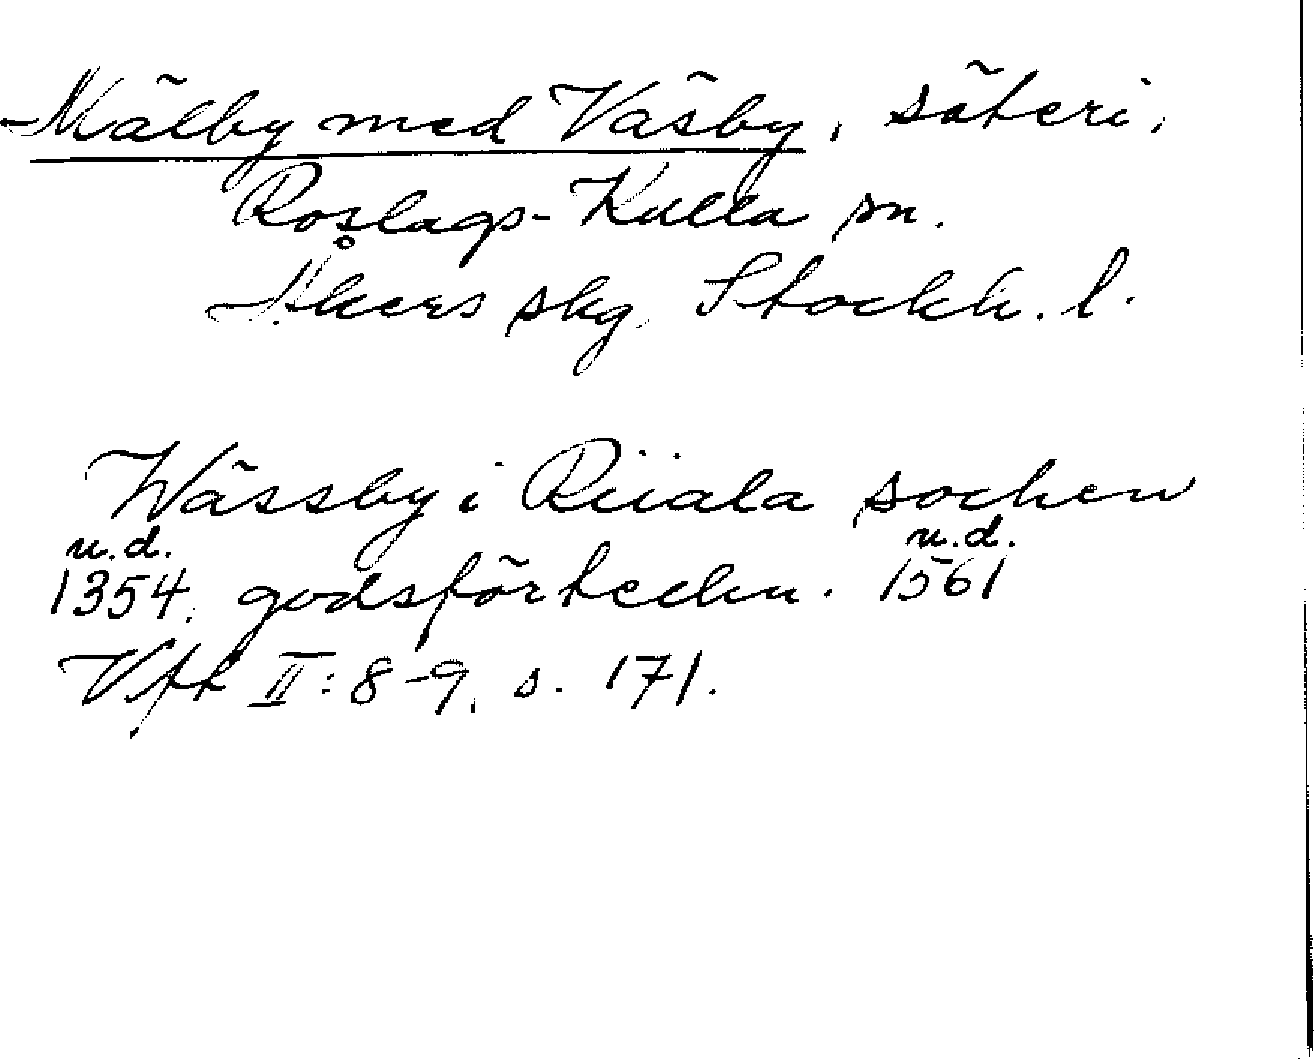 Mälby med Väsby, säteri,
Roslags-Kulla sn.
Åkers skg, Stockh. l.
Wässby i Riiala sochen
u.d. u.d.
1354, godsförteckn. 1561
Vff II: 8-9, s. 171.